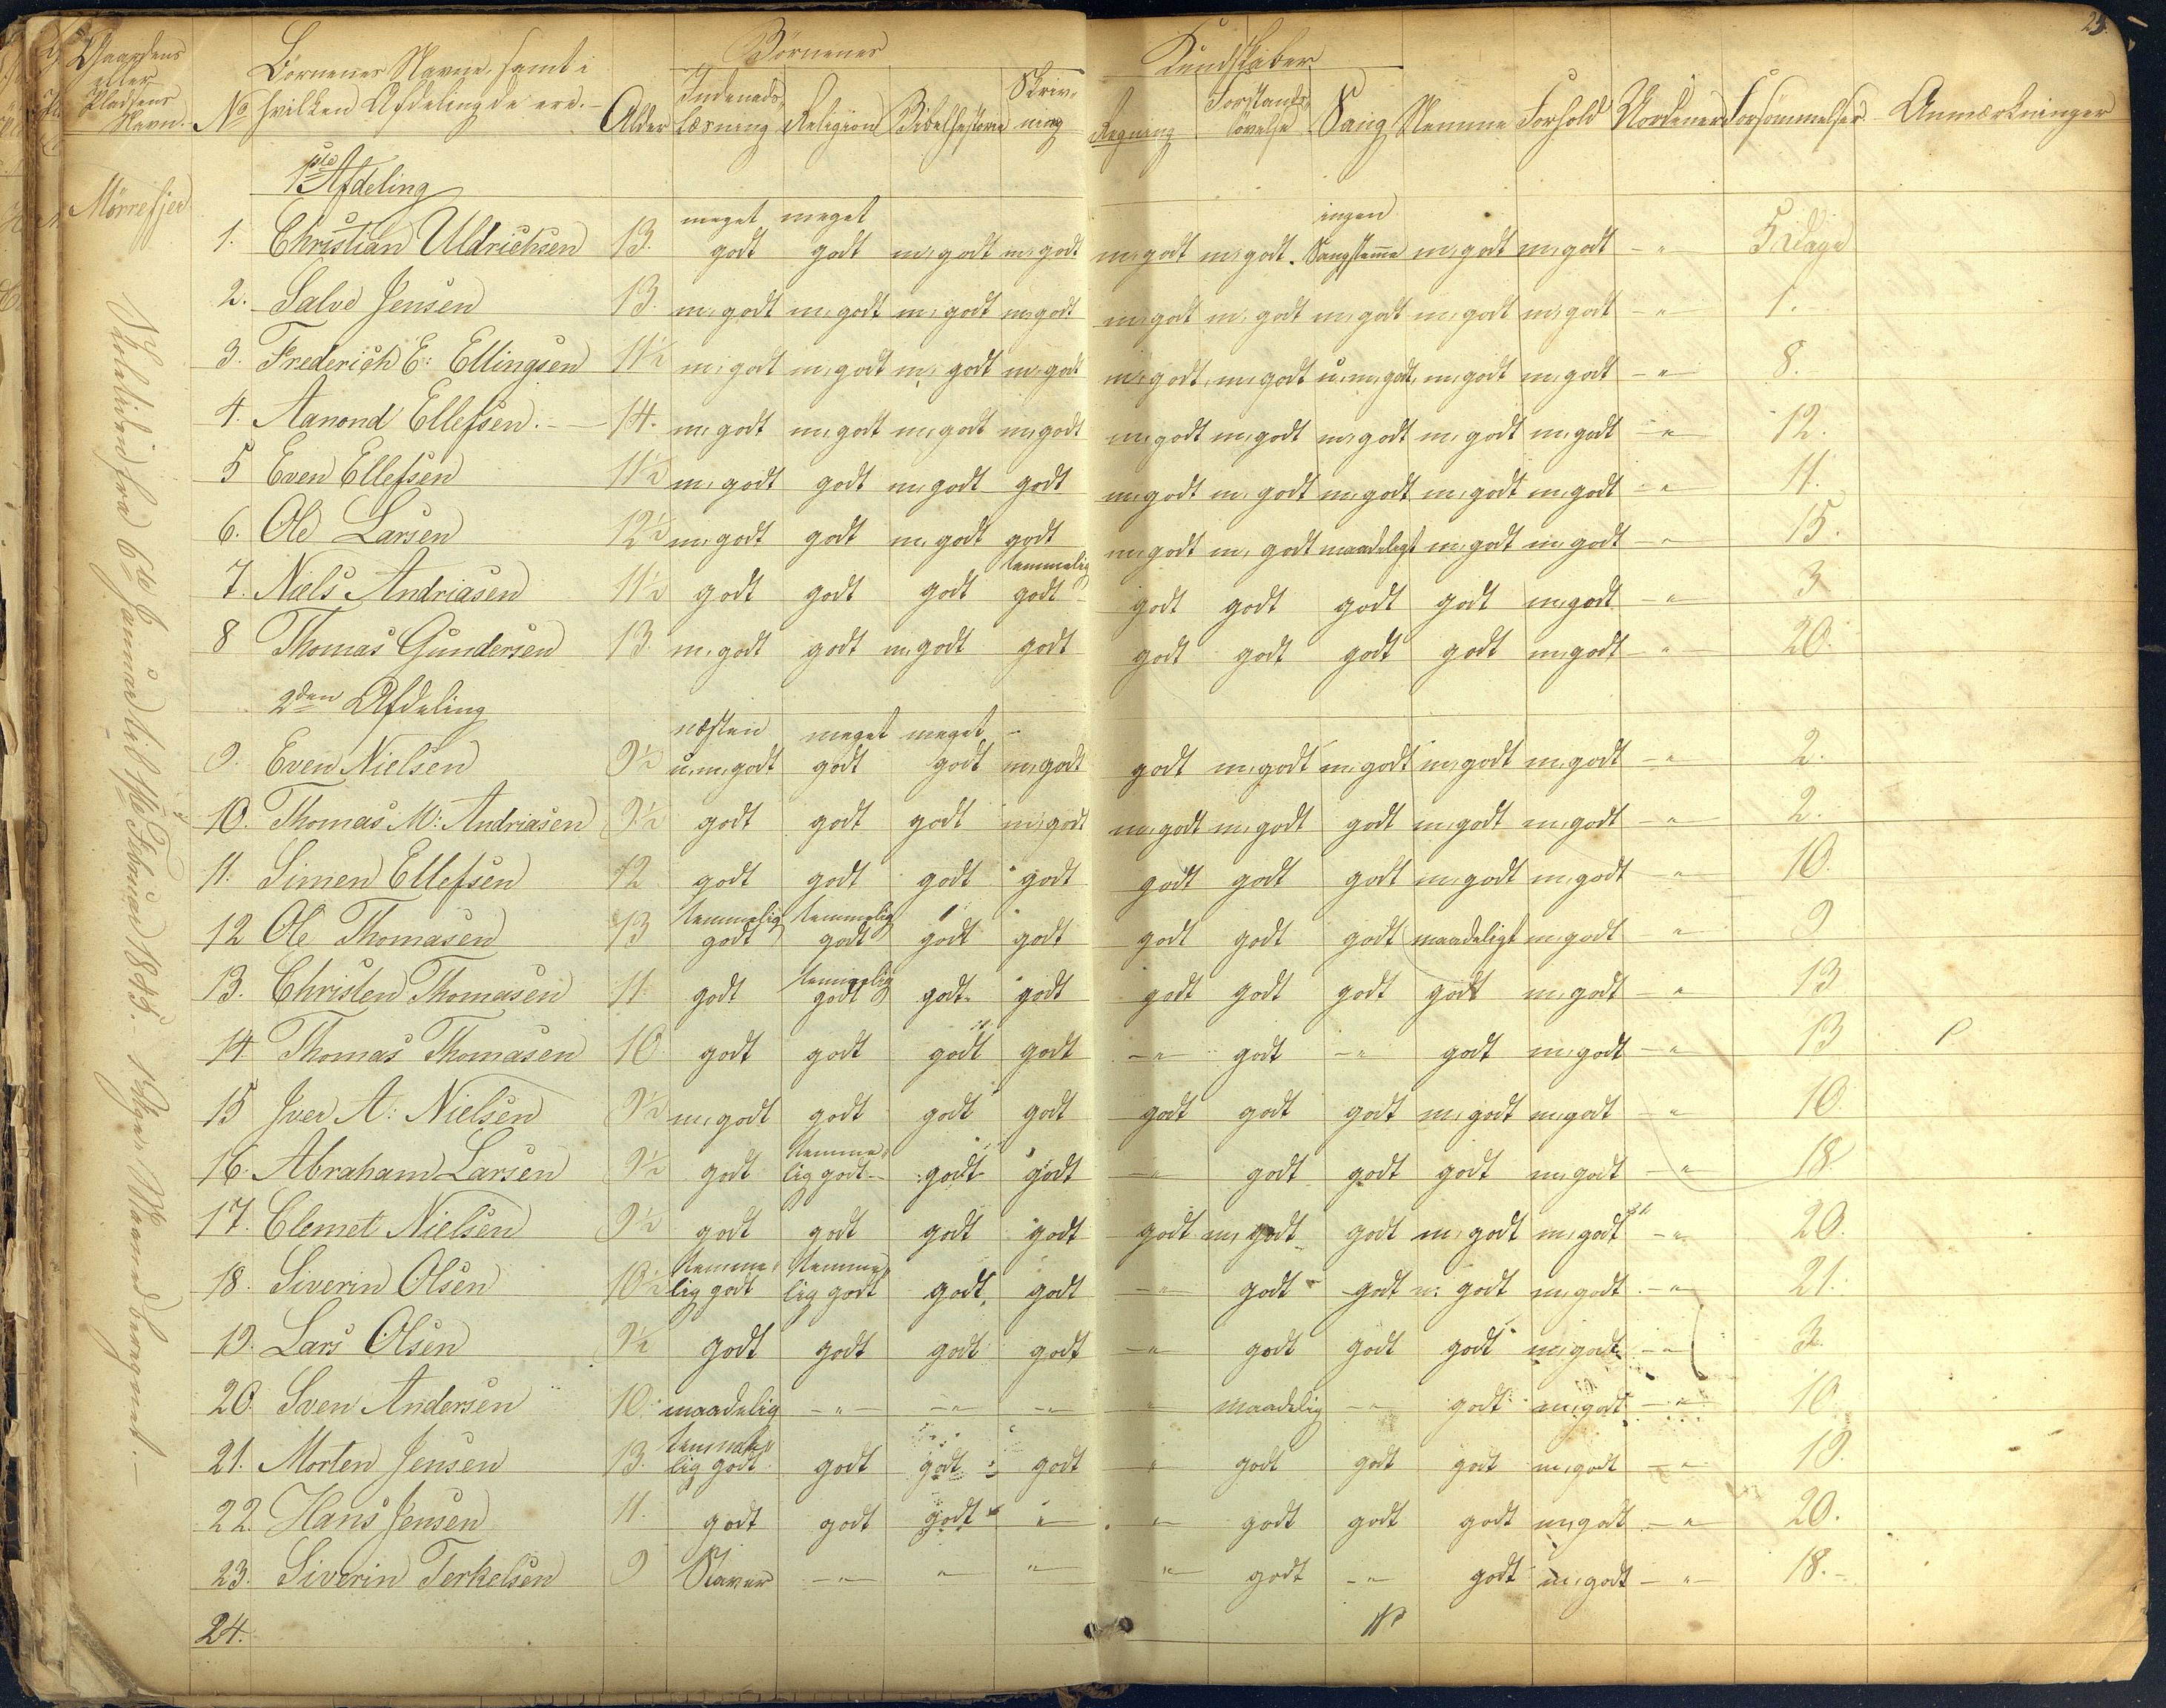 23.
Gaardens eller Pladsens Navn.
No
Børnenes Navne, samt i hvilken Afdeling de ere.
Alder
Børnenes Kundskaber
Indenads, læsning
Religion
Bibelhistorie
Skriv, ning
Regning
Forstands, øvelse
Sang
Nemme
Forhold
Uordener
Forsømmelser
Anmærkninger
1ste Afdeling
Mørrefjer
1. Christian Uldrichsen 13. meget godt meget godt m, godt m, godt m, godt m, godt. ingen Sangstemme m, godt m, godt - " - 5 Dage
2. Salve Jensen 13. m, godt m, godt m, godt m, godt m, godt m, godt m, godt m, godt m, godt - " - 1.
3. Frederich E: Ellingsen 11½ m, godt m, godt m, godt m, godt m, godt m, godt u, m, godt, m, godt m, godt - " - 8.
4. Aanond Ellefsen. 14. m, godt m, godt m, godt m, godt m, godt m, godt m, godt m, godt m, godt - " - 12.
5 Even Ellefsen 11½ m, godt godt m, godt godt m, godt m, godt m, godt m, godt m, godt - " - 11.
6. Ole Larsen 12½ m, godt godt m, godt godt m, godt m, godt maadeligt m, godt m, godt - " - 15.
7. Niels Andriasen 11½ godt godt godt temmelig godt godt godt godt godt m, godt - " - 3
8 Thomas Gundersen 13. m, godt godt m, godt godt godt godt godt godt m, godt - " - 20.
2den Afdeling
9. Even Nielsen 9½ næsten u, m, godt meget godt meget godt m, godt godt m, godt m, godt m, godt m, godt - " - 2.
10. Thomas M: Andriasen 9½ godt godt godt m, godt m, godt m, godt godt m, godt m, godt - " - 2.
11. Simen Ellefsen 12 godt godt godt godt godt godt godt m, godt m, godt " 10.
12 Ole Thomasen 13 temmelig godt temmelig godt godt godt godt godt godt maadeligt m, godt - " 9
13. Christen Thomasen 11 godt temmelig godt godt. godt godt godt godt godt m, godt - " 13
14. Thomas Thomasen 10 godt godt godt godt - " - godt - " godt m, godt - " - 13
15 Iver A: Nielsen 9½ m, godt godt godt godt godt godt godt m, godt m, godt - " 10
16. Abraham Larsen 9½ godt temme, lig godt godt godt - " - godt godt godt m, godt - " - 18
17. Clemet Nielsen 9½ godt godt godt godt godt m, godt godt m, godt m, godt - " - 20.
18. Siverin Olsen 10½ temme, lig godt temme, lig godt godt, godt - " - godt godt m, godt m, godt. - " - 21.
19. Lars Olsen 9½ godt godt godt godt - " - godt godt godt m, godt - " - 3.
20. Sven Andersen 10. maadelig - " - - " - - " - " maadelig - " godt m, godt - " - 10
21. Morten Jensen 13. temme, lig godt godt godt godt " godt godt godt m, godt - " 19.
22. Hans Jensen 11. godt godt godt " " godt godt godt m, godt - " - 20.
23. Siverin Terkelsen 9 Staver - " - " " - " - godt - " godt m, godt - " - 18.
24.
Skoletiden fra 6te Januar til Februar 1845.